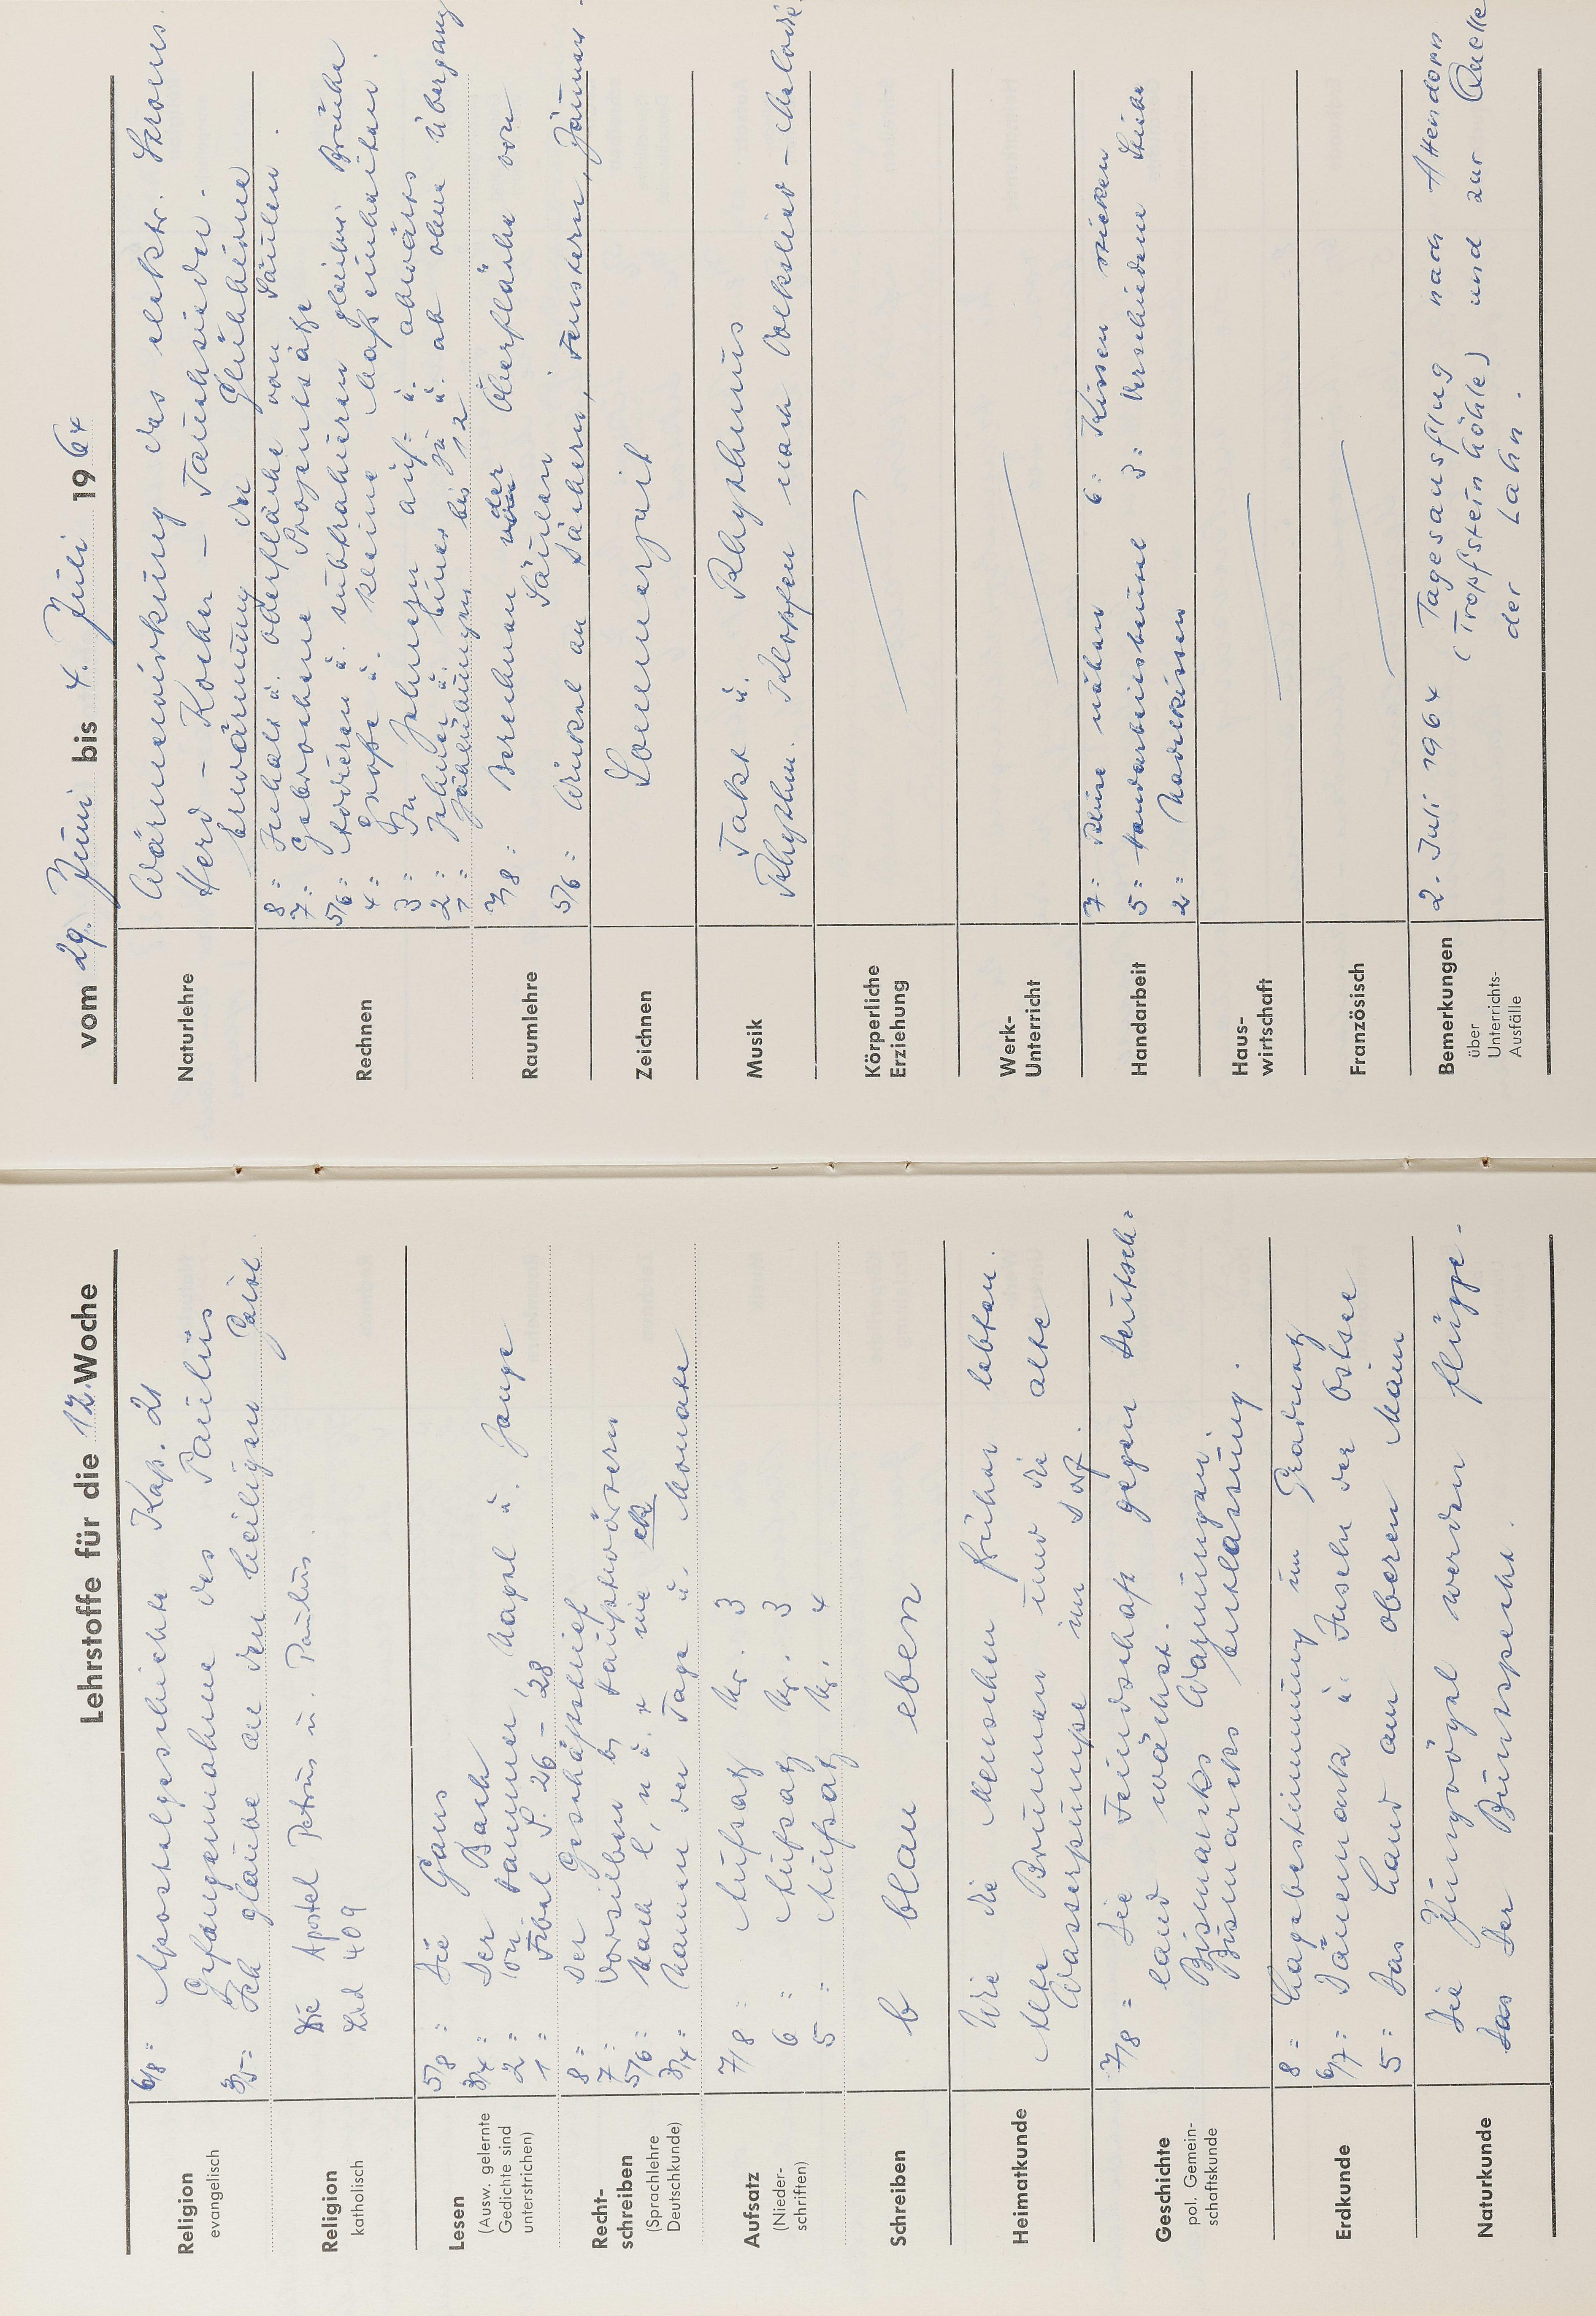 Lehrstoffe für die 12. Woche
Religion
evangelisch
6/8 = Apostelgeschichte Kap. 21
Gefangennahme des Paulus
3/5 = Ich glaube an den heiligen Geist
Religion
katholisch
Die Apostel Petrus u. Paulus.
Lied 409
Lesen
(Ausw. gelernte
Gedichte sind
unterstrichen)
5/8 = Die Gans
3/4 = Der Bach
2 = von Hammer, Nagel u. Zange
1 = Fibel S. 26 – 28
Recht-
schreiben
(Sprachlehre
Deutschkunde)
8 = Der Geschäftsbrief
7 = Vorsilben bei Hauptwörtern
5/6 = Nach l, n u. r nie ck
3/4 = Namen der Tage u. Monate
Aufsatz
(Nieder-
schriften)
7/8 = Aufsatz Nr. 3
6 = Aufsatz Nr. 3
5 = Aufsatz Nr. 4
Schreiben
b blau eben
Heimatkunde
Wie die Menschen früher lebten.
Alte Brunnen und die alte
Wasserpumpe im Dorf.
Geschichte
pol. Gemein-
schaftskunde
7/8 = Die Feindschaft gegen Deutsch=
land wächst.
Bismarks Warnungen.
Bismarcks Entlassung.
Erdkunde
8 = Lagebestimmung im Gradnetz
6/7 = Dänemark u. Inseln der Ostsee
5 = Das Land am oberen Main
Naturkunde
Die Jungvögel werden flügge.
Der Buntspecht.
vom 29. Juni bis 4. Juli 1964
Naturlehre
Wärmewirkung des elektr. Stroms.
Herd – Kocher – Tauchsieder.
Erwärmung der Glühbirne
Rechnen
8 = Inhalt u. Oberfläche von Säulen.
7 = Gebrochene Prozentsätze
5/6 = Addieren u. subtrahieren gleichn. Brüche
4 = Große u. kleine Maßeinheiten.
3 = In Zehnern auf= u. abwärts
2 = Zehner u. Einer zu u. ab ohne Übergang
1 = Zählübungen bis 12
Raumlehre
7/8 = Berechnen der Oberfläche von
Säulen
5/6 = Winkel an Dächern, Fenstern, Zäunen
Zeichnen
Sommerzeit
Musik
Takt u. Rhythmus
Rhythm. Klopfen nach Volkslied – Melodie
Körperliche
Erziehung
Werk-
Unterricht
Handarbeit
7 = Bluse nähen 6 = Kissen sticken
5 = Handarbeitsbeutel 3 = Verschiedene Stiche
2 = Nadelkissen
Haus-
wirtschaft
Französisch
Bemerkungen
über
Unterrichts-
Ausfälle
2. Juli 1964 Tagesausflug nach Attendorn
(Tropfsteinhöhle) und zur Quelle
der Lahn.